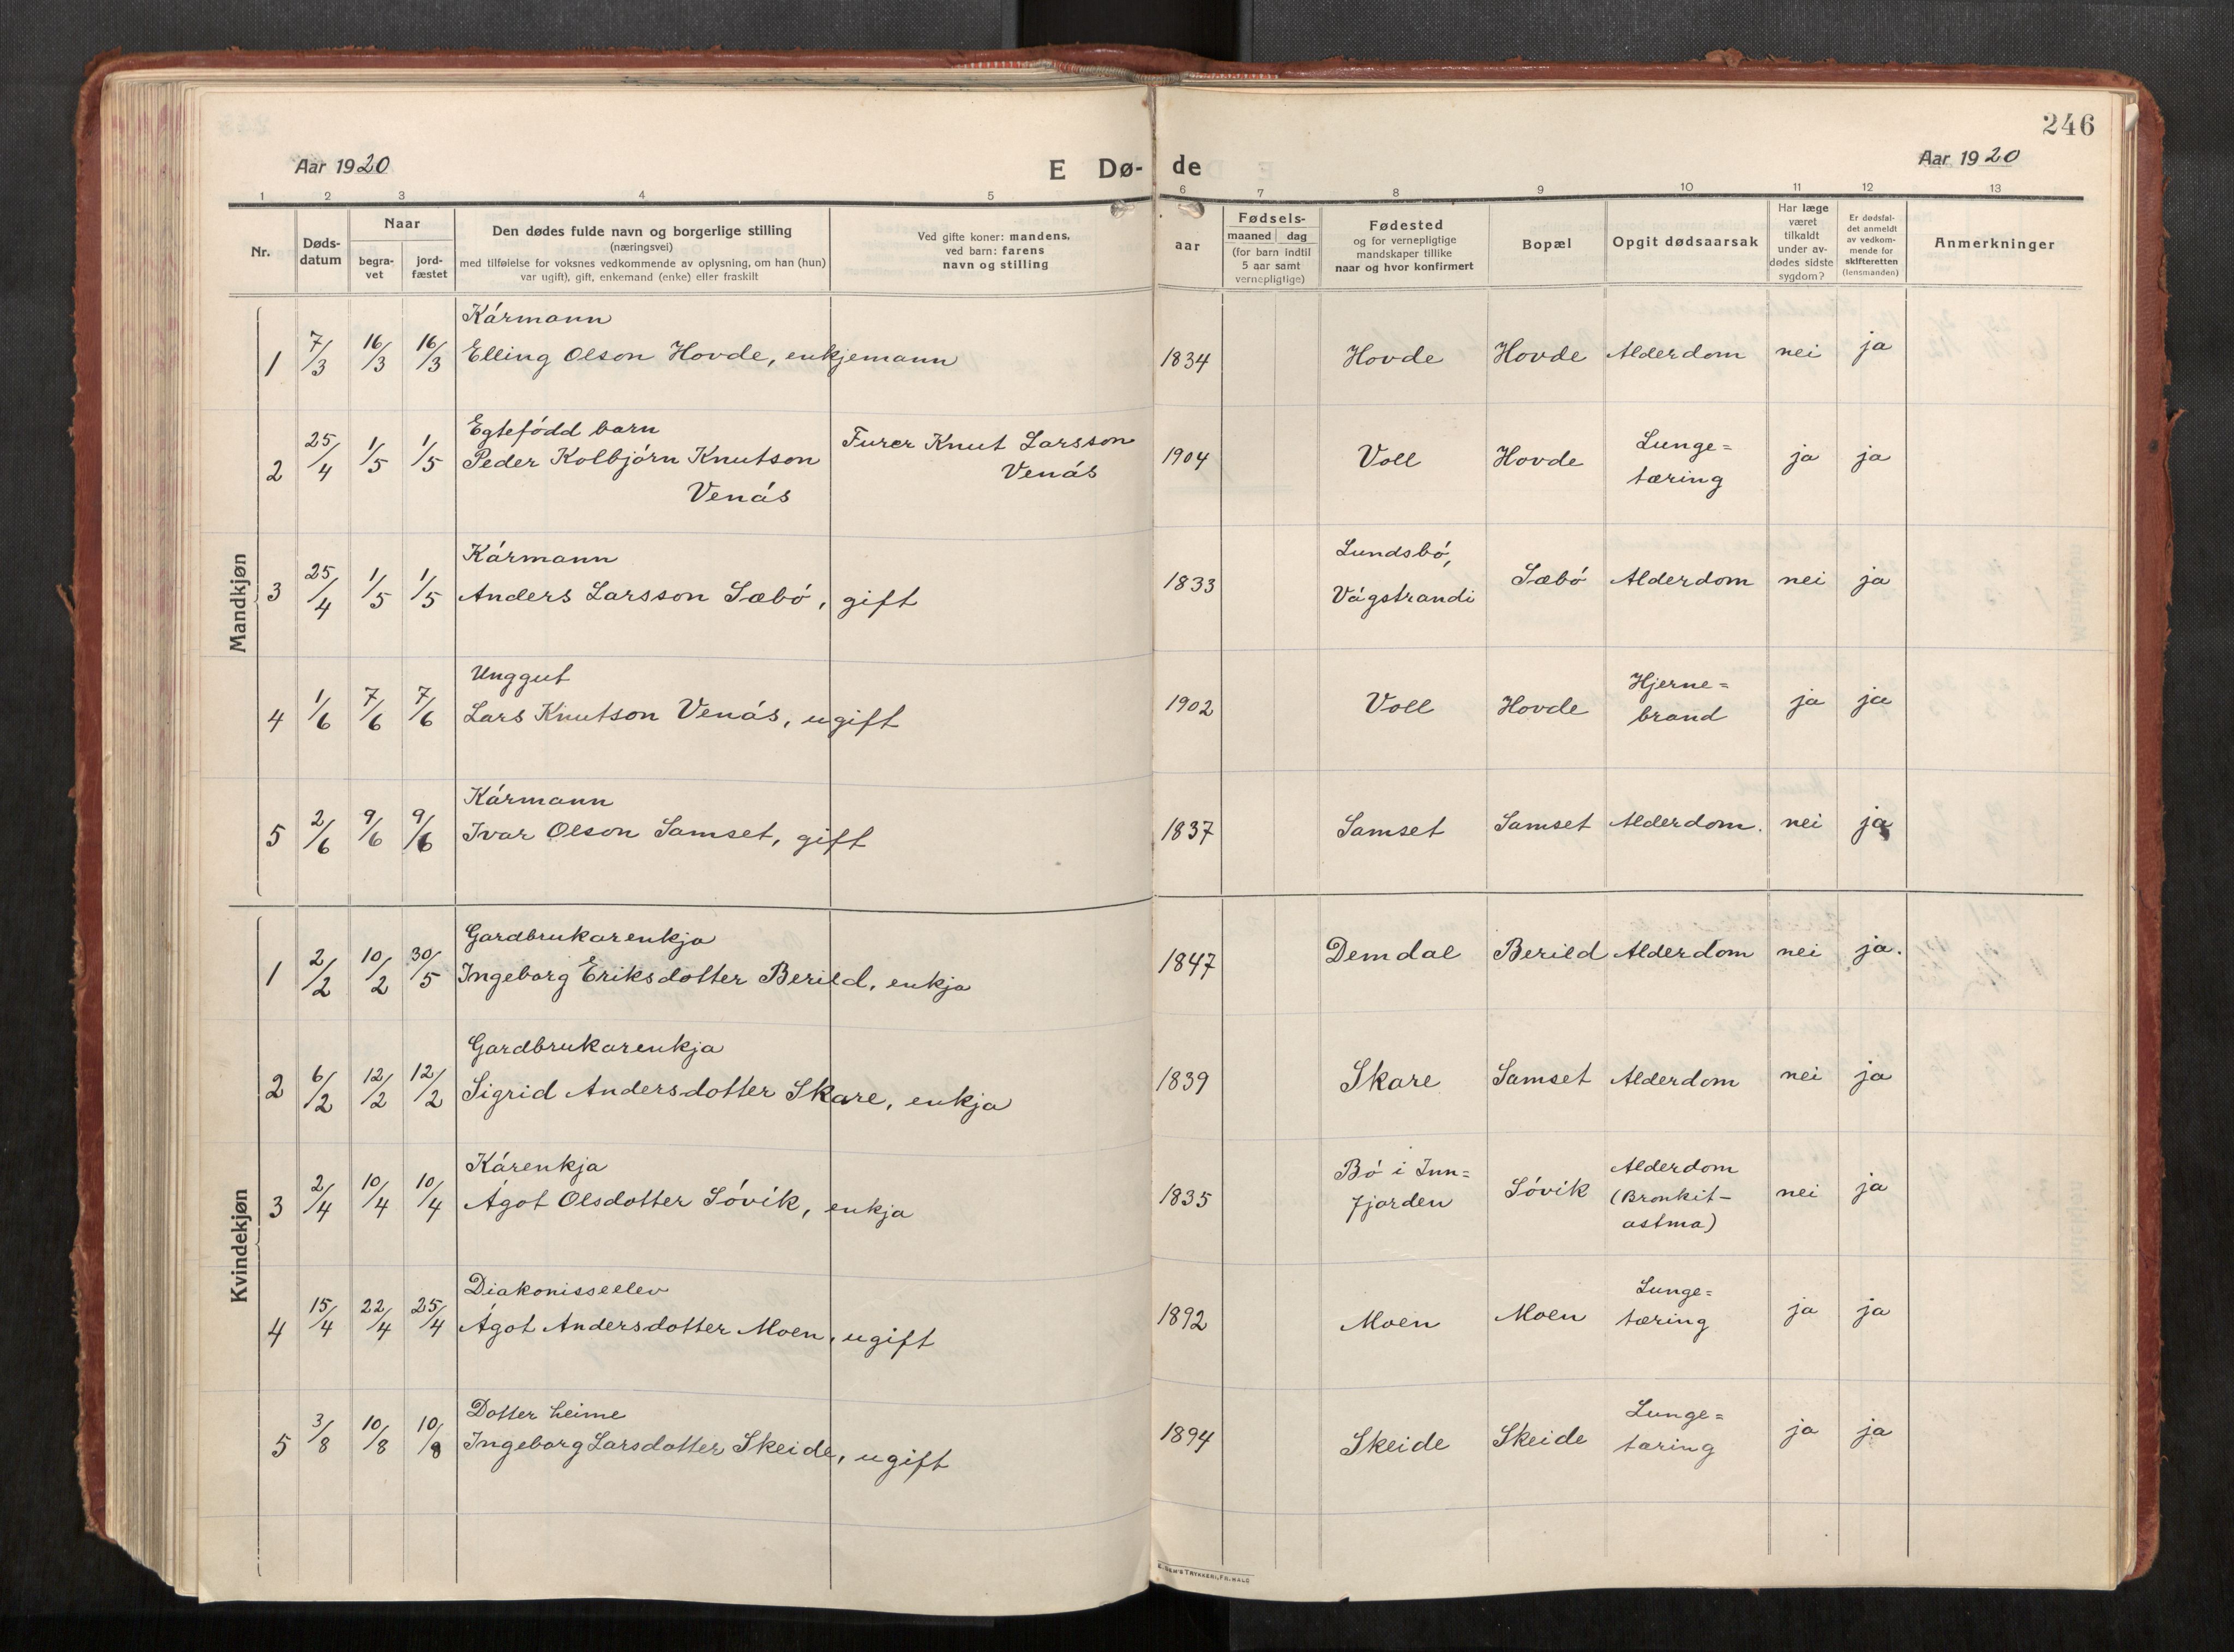 246
Aar 1920
E Dø- de
Aar 1920
1 2 3 4 5 6 7 8 9 10 11 12 13
Nr.
Døds-
datum
Naar
begra-
vet
jord-
fæstet
Den dødes fulde navn og borgerlige stilling
(næringsvei)
med tilføielse for voksnes vedkommende av oplysning, om han (hun)
var ugift), gift, enkemand (enke) eller fraskilt
Ved gifte koner: mandens,
ved barn: farens
navn og stilling
Fødsels-
aar
maaned dag
(for barn indtil
5 aar samt
vernepligtige)
Fødested
og for vernepligtige
mandskaper tillike
naar og hvor konfirmert
Bopæl
Opgit dødsaarsak
Har læge
været
tilkaldt
under av-
dødes sidste
sygdom?
Er dødsfal-
det anmeldt
av vedkom-
mende for
skifteretten
(lensmanden)
Anmerkninger
Mandkjøn
Kármann
1 7/3 16/3 16/3 Elling Olson Hovde, enkjemann 1834 Hovde Hovde Alderdom nei ja
Egtefódd barn Furer Knut Larsson Lunge=
2 25/4 1/5 1/5 Peder Kolbjórn Knutson Venás 1904 Voll Hovde tæring ja ja
Venás
Kármann Lundsbó,
3 25/4 1/5 1/5 Anders Larsson Sæbó, gift 1833 Vágstrandi Sæbó Alderdom nei ja
Unggut Hjerne=
4 1/6 7/6 7/6 Lars Knutson Venás, ugift 1902 Voll Hovde brand ja ja
Kármann
5 2/6 9/6 9/6 Ivar Olson Samset, gift 1837 Samset Samset Alderdom. nei ja
Kvindekjøn
Gardbrukarenkja
1 2/2 10/2 30/5 Ingeborg Eriksdotter Berild, enkja 1847 Demdal Berild Alderdom nei ja.
Gardbrukarenkja
2 6/2 12/2 12/2 Sigrid Andersdotter Skare, enkja 1839 Skare Samset Alderdom nei ja
Kárenkja Bó i Inn= Alderdom
3 2/4 10/4 10/4 Ágot Olsdotter Sóvik, enkja 1835 fjorden Sóvik (Bronkit- nei ja
astma)
Diakonisseelev Lunge=
4 15/4 22/4 25/4 Ágot Andersdotter Moen, ugift 1892 Moen Moen tæring ja ja
Dotter heime Lunge=
5 3/8 10/8 10/8 Ingeborg Larsdotter Skeide, ugift 1894 Skeide Skeide tæring ja ja